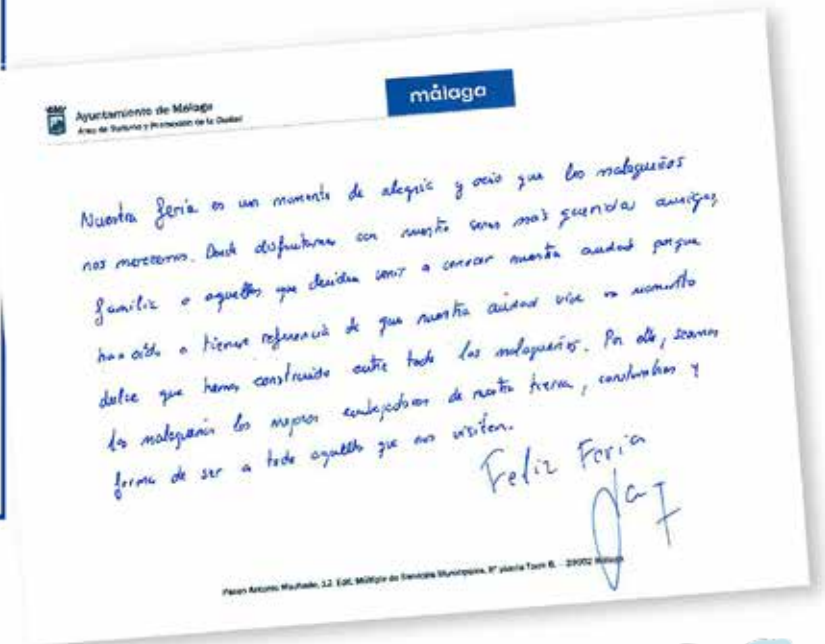 Ayuntamiento de Málaga
Área de Turismo y Promoción de la Ciudad
málaga
Nuestra feria es un momento de alegría y ocio que los malagueños
nos merecemos. Donde disfrutamos con nuestros seres más queridos amigos,
familia o aquellos que deciden venir a conocer nuestra ciudad porque
han oído o tienen referencia de que nuestra ciudad vive un momento
dulce que hemos construido entre todos los malagueños. Por ello, seamos
los malagueños los mejores embajadores de nuestra tierra, costumbres y
forma de ser a todo aquellos que nos visiten.
Feliz Feria
Paseo Antonio Machado, 12. Edif. Múltiple de Servicios Municipales, 8ª planta Torre B. - 29002 Málaga